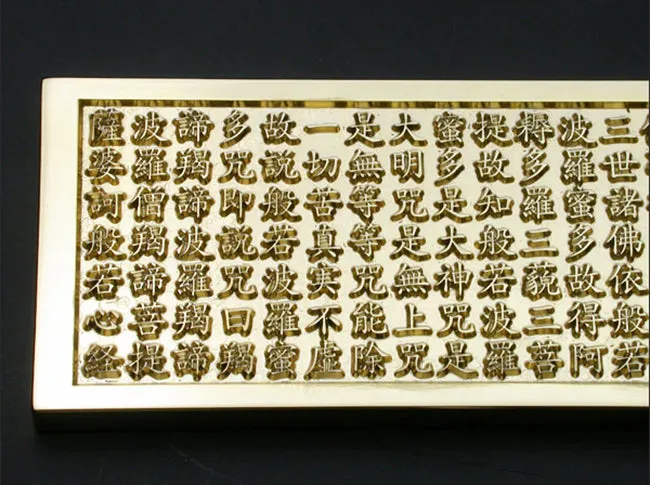 三世諸佛依般若
波羅蜜多故得阿
耨多羅三藐三菩
提故知般若波羅
蜜多是大神咒是
大明咒是無上咒
是無等等咒能除
一切苦真実不虚
故説般若波羅蜜
多咒即説咒曰羯
諦羯諦波羅羯諦
波羅僧羯諦菩提
薩婆訶般若心経